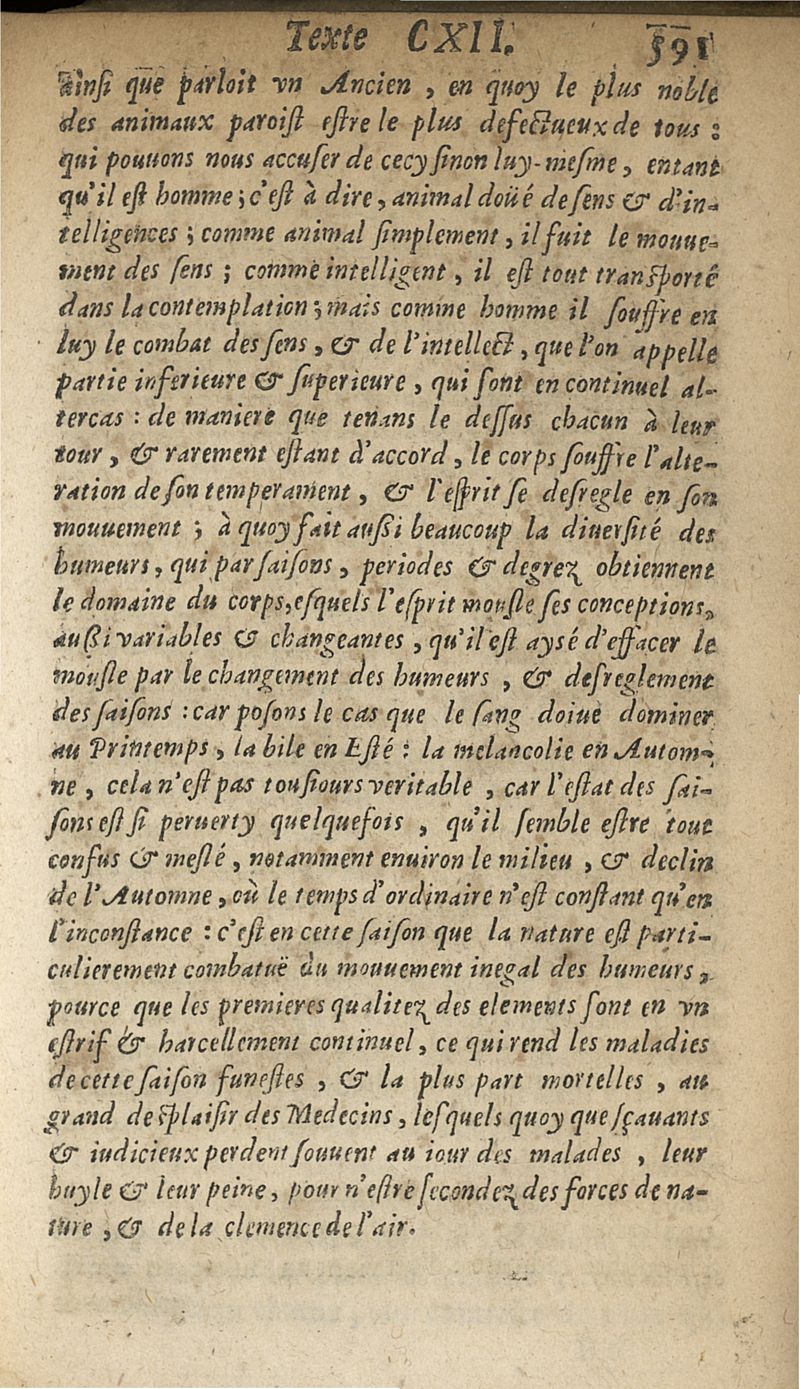 Texte CXII. 591
ainſi que parloit vn Ancien, en quoy le plus noble
des animaux paroiſt eſtre le plus defectueux de tous :
qui pouuons nous accuſer de cecy ſinon luy-meſme, entant
qu'il eſt homme ; c'eſt à dire, animal doüé de ſens & d'in-
telligences ; comme animal ſimplement, il ſuit le mouue-
ment des ſens ; comme intelligent, il eſt tout tranſporté
dans la contemplation ; mais comme homme il ſouffre en
luy le combat des ſens, & de l'intellect, que l'on appelle
partie inferieure & ſuperieure, qui ſont en continuel al-
tercas : de maniere que tenans le deſſus chacun à leur
tour, & rarement eſtant d'accord, le corps ſouffre l'alte-
ration de ſon temperament, & l'eſprit ſe deſregle en ſon
mouuement ; à quoy fait auſſi beaucoup la diuerſité des
humeurs, qui par ſaiſons, periodes & degrez obtiennent
le domaine du corps, eſquels l'eſprit mouſle ſes conceptions,
auſſi variables & changeantes, qu'il eſt aysé d'effacer le
mouſle par le changement des humeurs, & deſreglement
des ſaiſons : car poſons le cas que le ſang doiue dominer
au Printemps, la bile en Eſté : la melancolie en Autom-
ne, cela n'eſt pas touſiours veritable, car l'eſtat des ſai-
ſons eſt ſi peruerty quelquefois, qu'il ſemble eſtre tout
confus & meſlé, notamment enuiron le milieu, & declin
de l'Automne, où le temps d'ordinaire n'eſt conſtant qu'en
l'inconſtance : c'eſt en cette ſaiſon que la nature eſt parti-
culierement combatuë du mouuement inegal des humeurs,
pource que les premieres qualitez des elements ſont en vn
eſtrif & harcellement continuel, ce qui rend les maladies
de cette ſaiſon funeſtes, & la plus part mortelles, au
grand deſplaiſir des Medecins, leſquels quoy que ſçauants
& iudicieux perdent ſouuent au iour des malades, leur
huyle & leur peine, pour n'eſtre ſecondez des forces de na-
ture, & de la clemence de l'air.